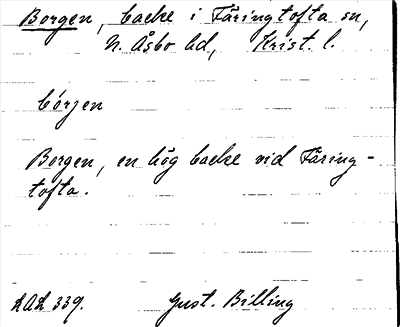 Borgen, backe i Färingtofta sn,
N. Åsbo hd, Krist. l.
bórjen
Borgen, en hög backe vid Färing-
tofta.
LAL 339. Gust. Billing